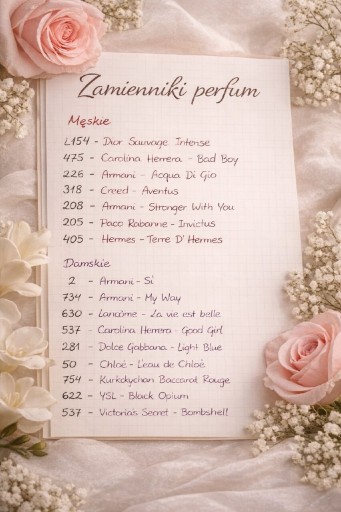 Zamienniki perfum
Męskie
L154 - Dior Sauvage Intense
475 - Carolina Herrera - Bad Boy
226 - Armani - Acqua Di Gio
318 - Creed - Aventus
208 - Armani - Stronger With You
205 - Paco Rabanne - Invictus
405 - Hermes - Terre D'Hermes
Damskie
2 - Armani - Sì
734 - Armani - My Way
630 - Lancôme - La vie est belle
537 - Carolina Herrera - Good Girl
281 - Dolce Gabbana - Light Blue
50 - Chloé - L'eau de Chloé
754 - Kurkdychan Baccarat Rouge
622 - YSL - Black Opium
537 - Victoria's Secret - Bombshell